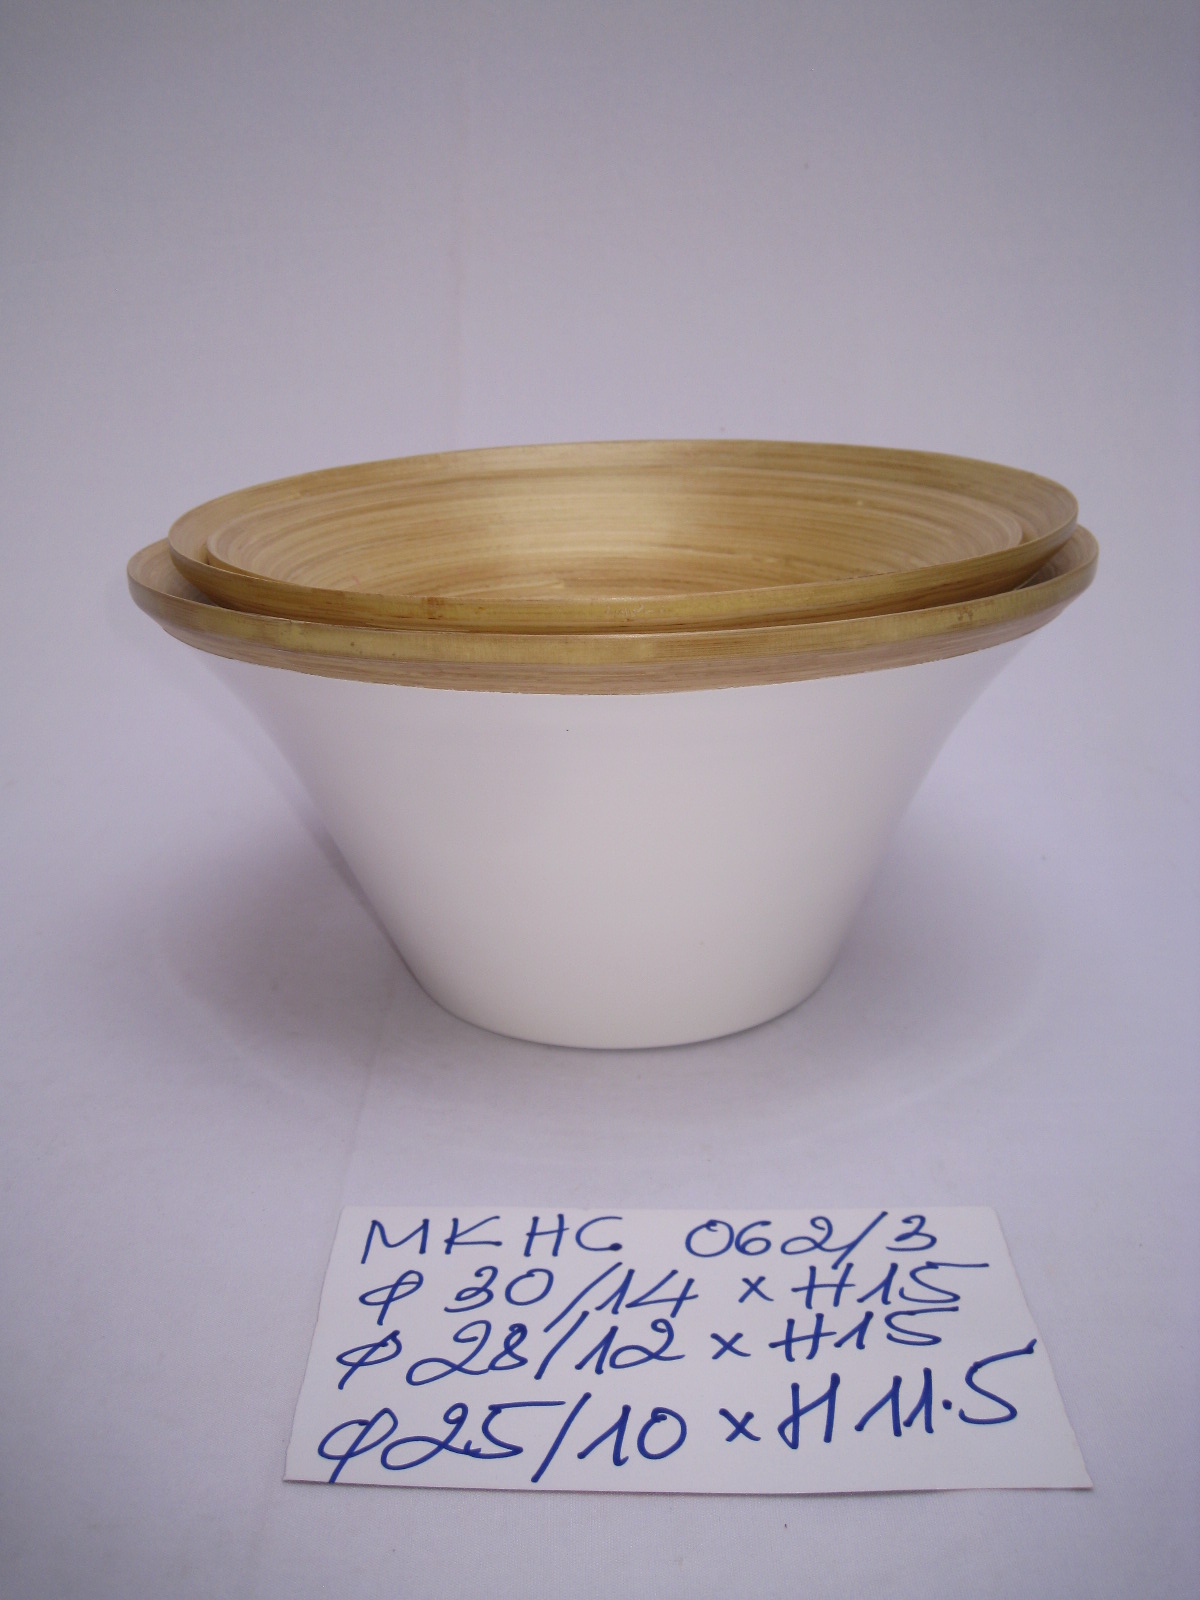 MKHC 062/3
φ 30/14 x H15
φ 28/12 x H15
φ 25/10 x H 11.5